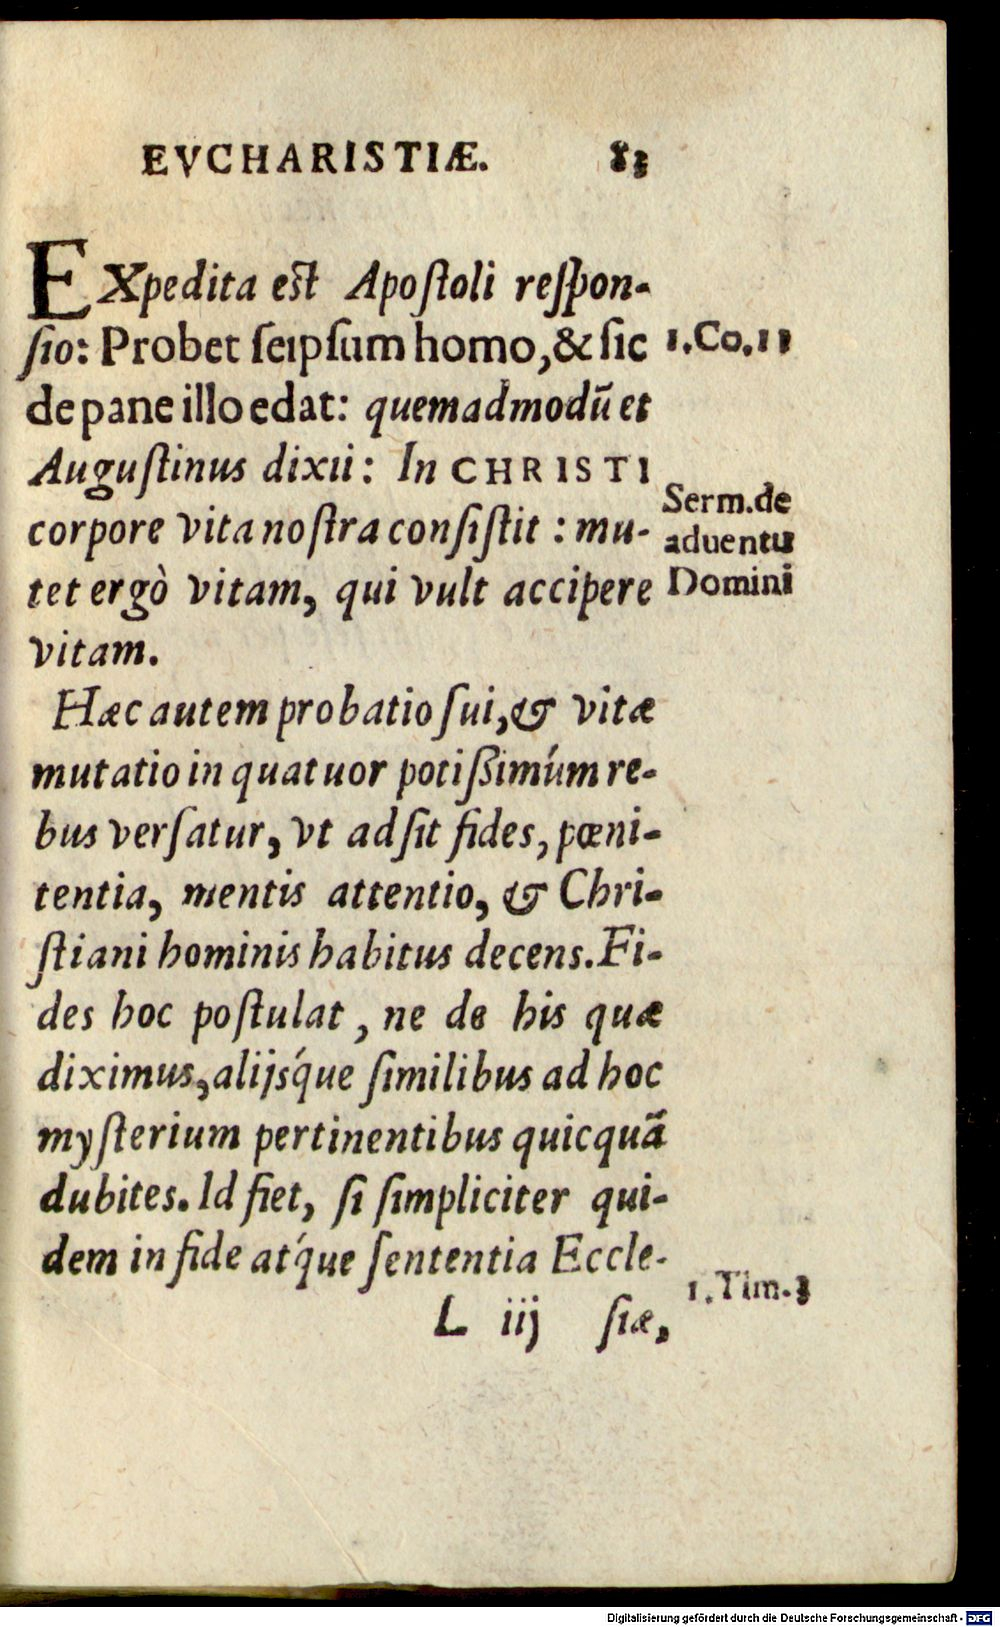 EVCHARISTIÆ. 83
EXpedita eſt Apoſtoli reſpon-
ſio: Probet ſeipſum homo, & ſic 1.Co.11
de pane illo edat: quemadmodū et
Auguſtinus dixit: In CHRISTI
corpore vita noſtra conſiſtit : mu- Serm.de
aduentu
tet ergò vitam, qui vult accipere Domini
vitam.
Hæc autem probatio ſui, & vitæ
mutatio in quatuor potißimùm re-
bus verſatur, vt adſit fides, pœni-
tentia, mentis attentio, & Chri-
ſtiani hominis habitus decens. Fi-
des hoc poſtulat, ne de his quæ
diximus, alijsq́ue ſimilibus ad hoc
myſterium pertinentibus quicquā
dubites. Id fiet, ſi ſimpliciter qui-
dem in fide atq́ue ſententia Eccle-
1.Tim.3
L iij ſiæ,
Digitalisierung gefördert durch die Deutsche Forschungsgemeinschaft - DFG